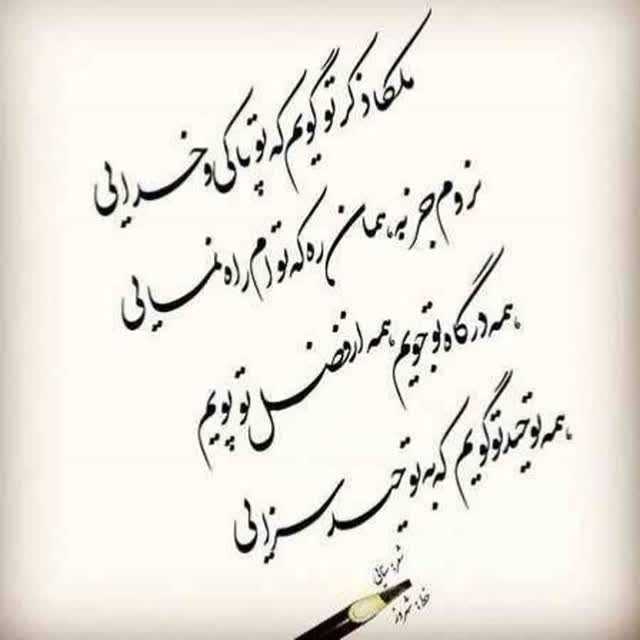 ملکا ذکر تو گویم که تو پاکی و خدایی
نروم جز به همان ره که توام راه نمایی
همه درگاه تو جویم همه از فضل تو پویم
همه توحید تو گویم که به توحید سزایی
شعر: سنایی
خط: